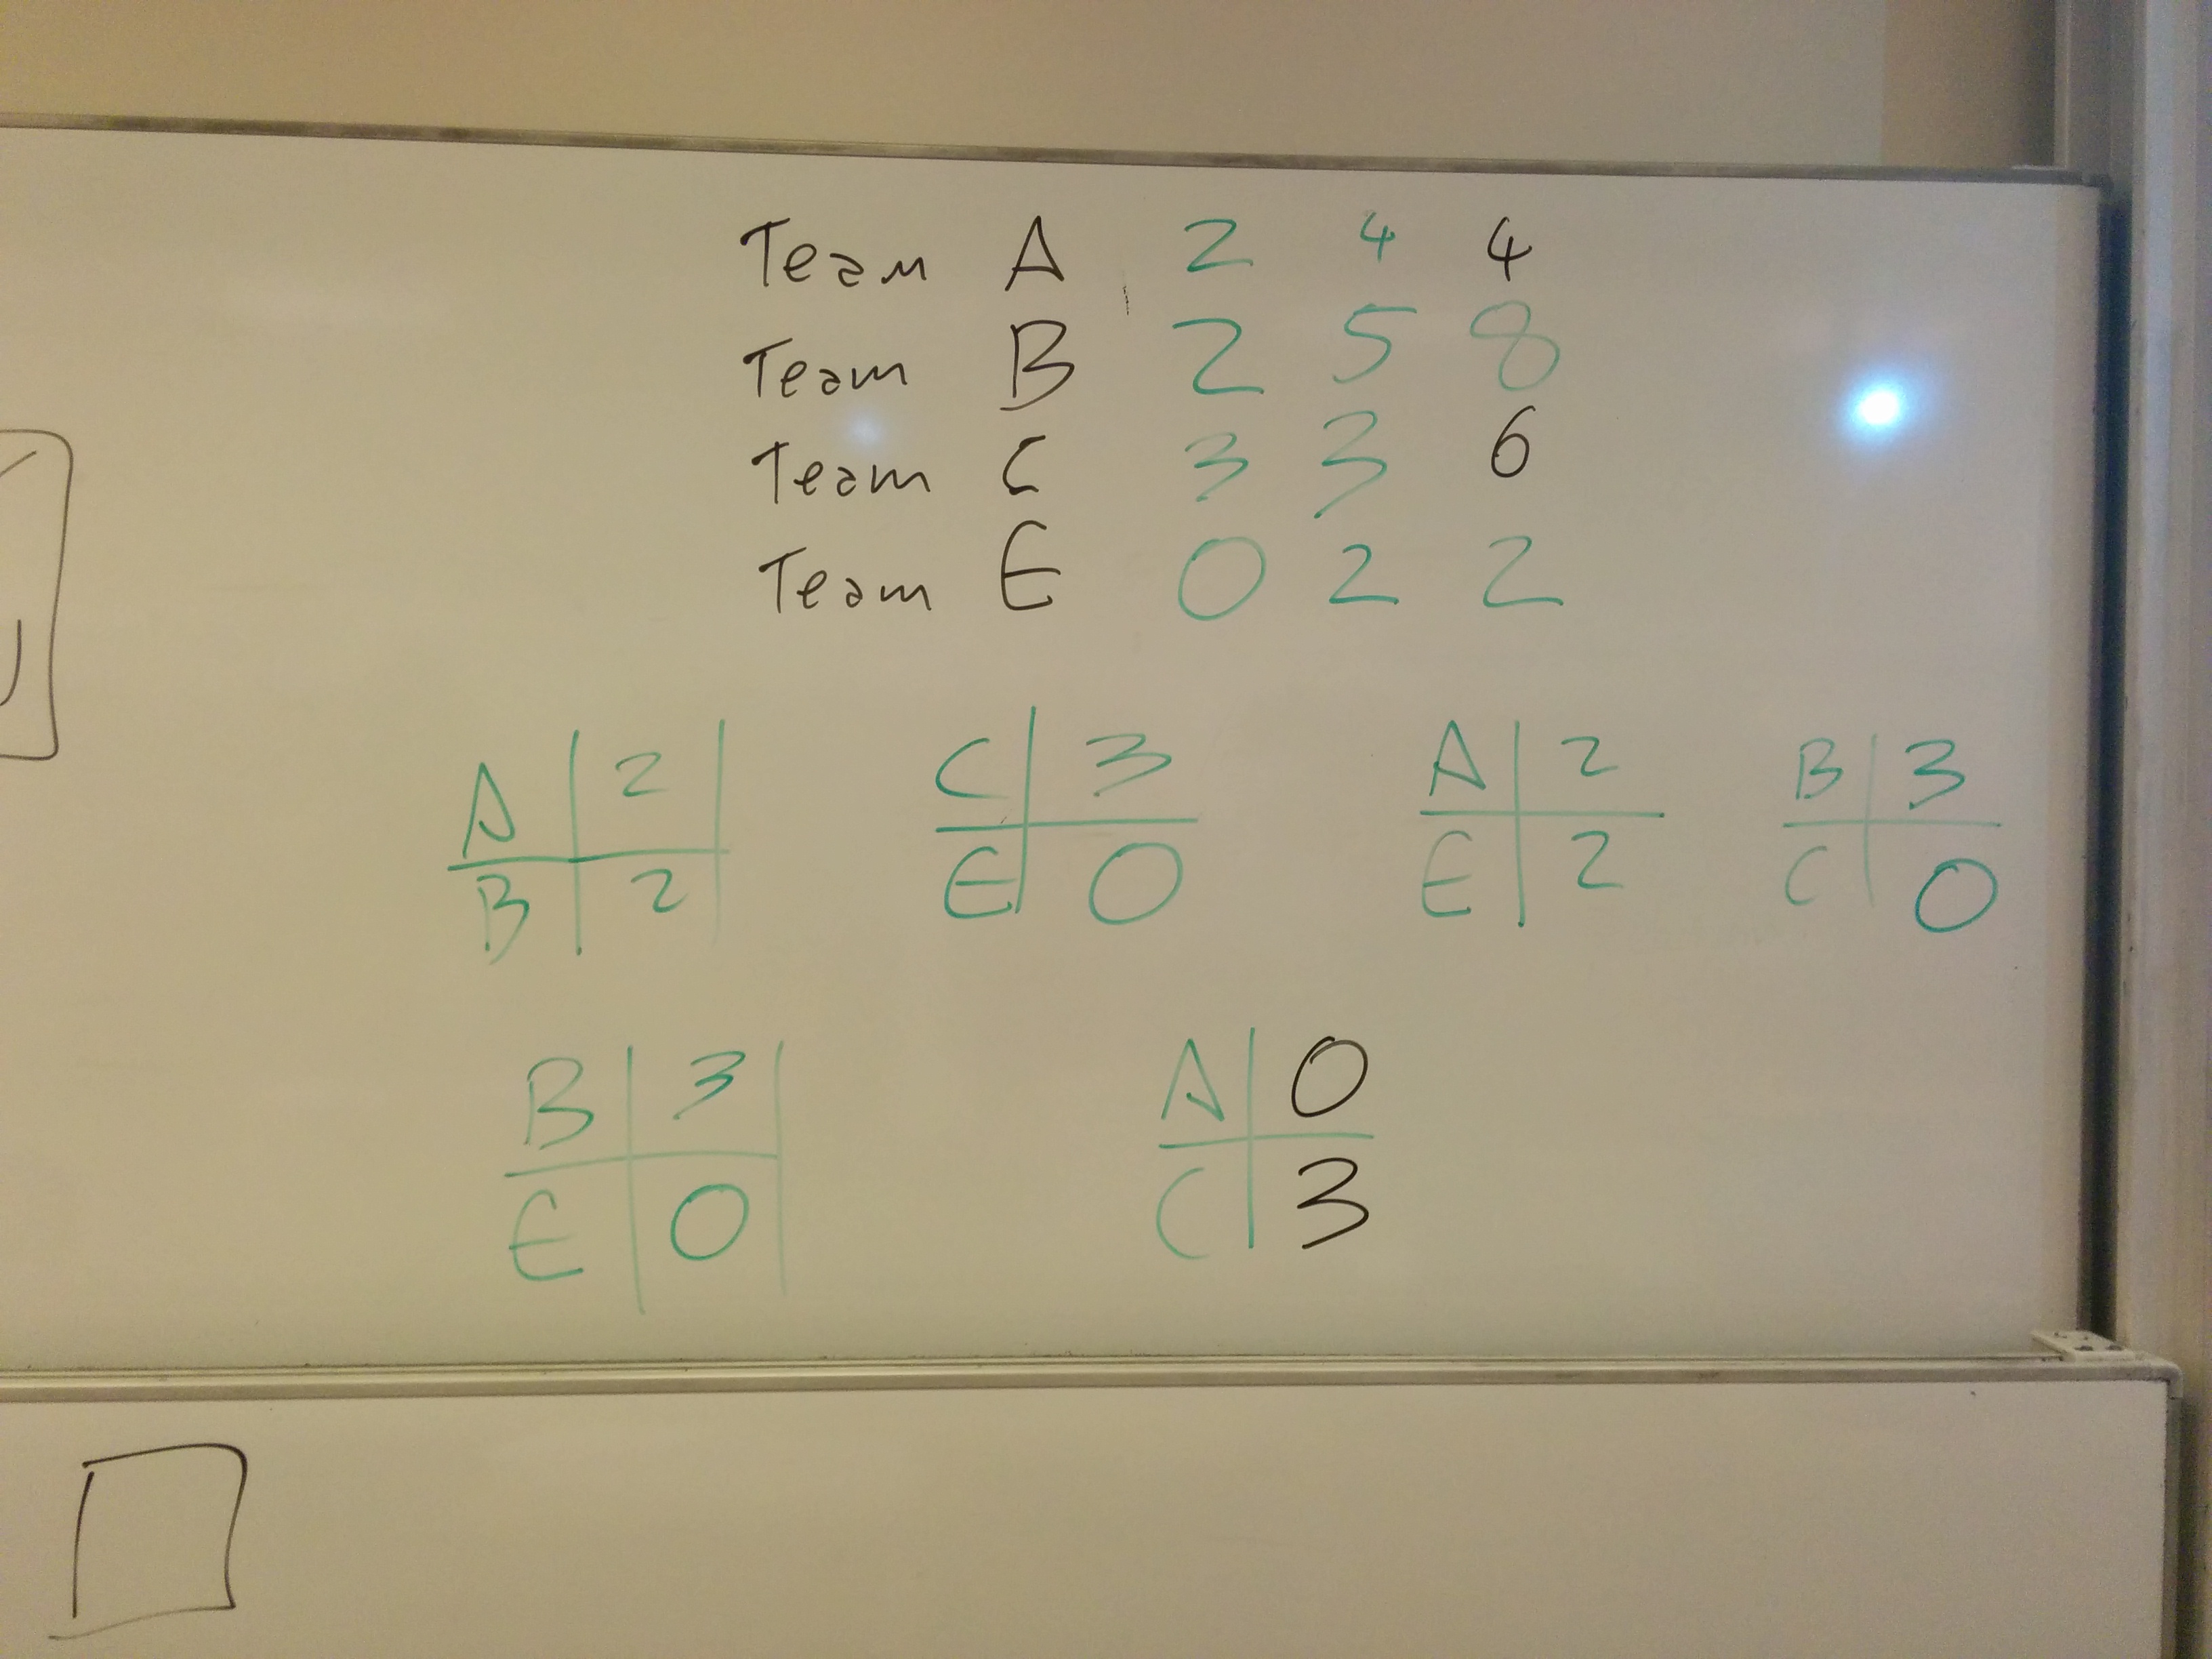 Team A 2 4 4
Team B 2 5 8
Team C 3 3 6
Team E 0 2 2
A 2
B 2
C 3
E 0
A 2
E 2
B 3
C 0
B 3
E 0
A 0
C 3